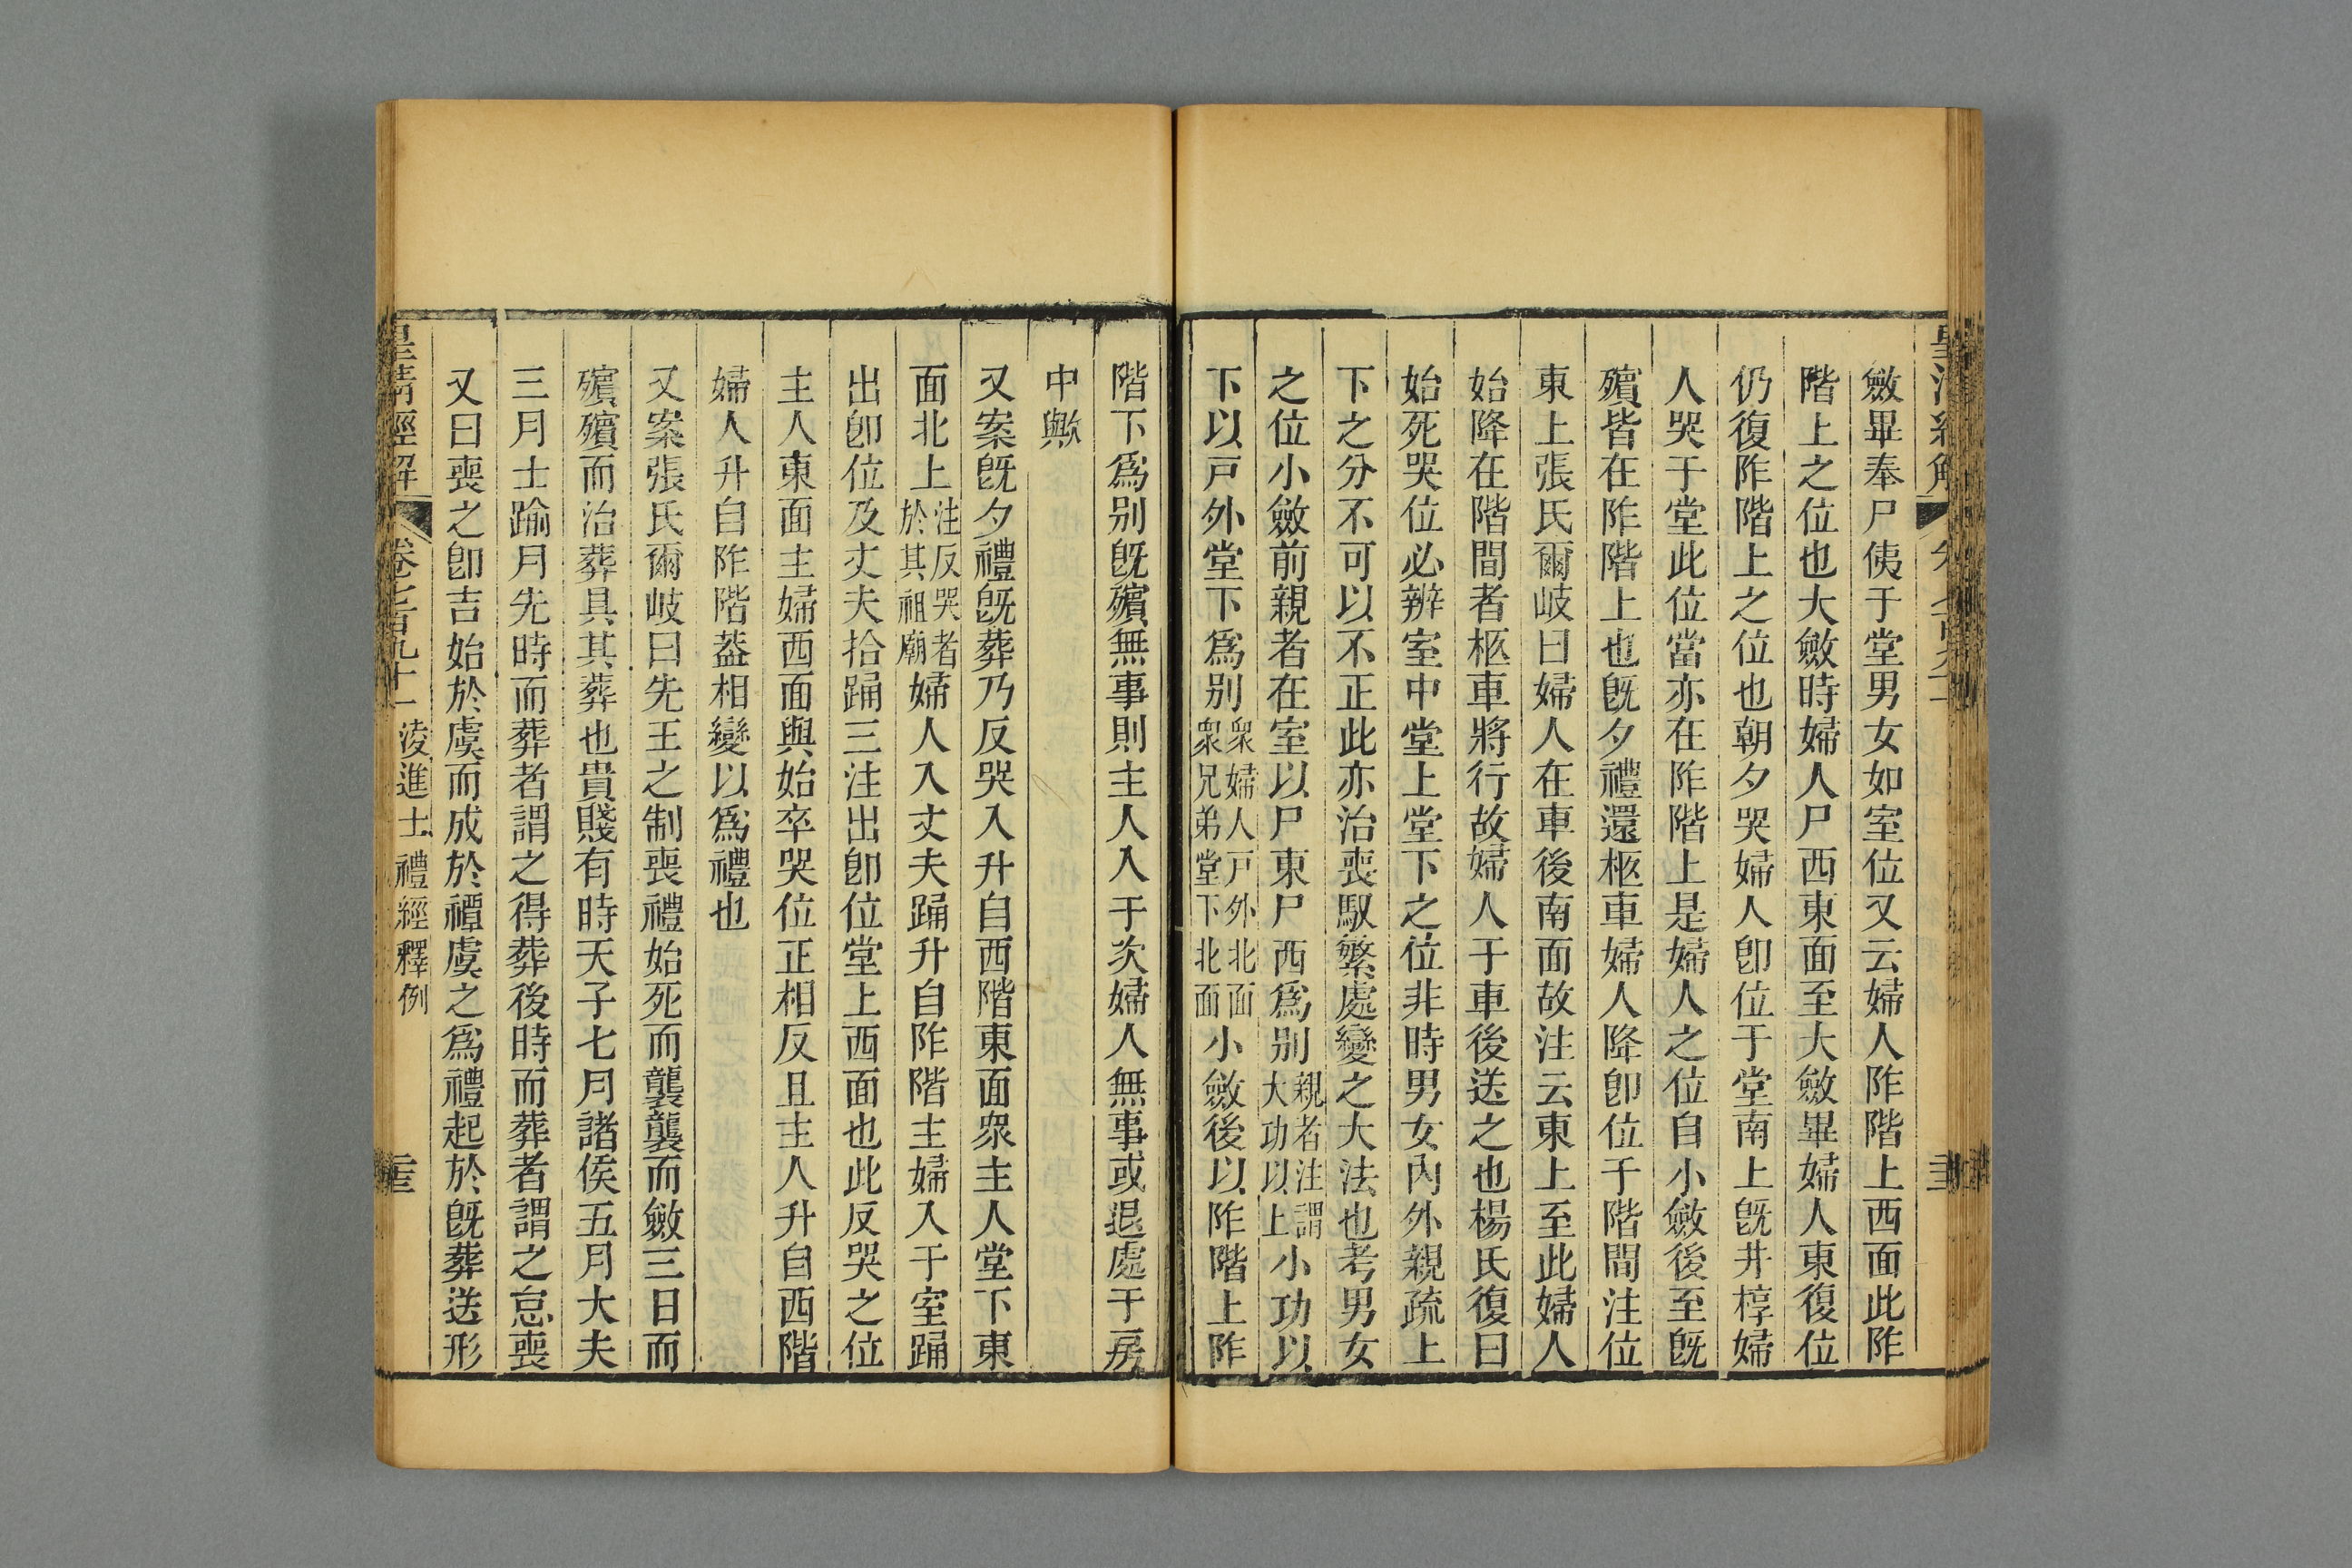 斂畢奉尸侇于堂男女如室位又云婦人阼階上西面此阼
階上之位也大斂時婦人尸西東面至大斂畢婦人東復位
仍復阼階上之位也朝夕哭婦人卽位于堂南上旣井椁婦
人哭于堂此位當亦在阼階上是婦人之位自小斂後至旣
殯皆在阼階上也旣夕禮還柩車婦人降卽位于階間注位
東上張氏爾岐曰婦人在車後南面故注云東上至此婦人
始降在階間者柩車將行故婦人于車後送之也楊氏復曰
始死哭位必辨室中堂上堂下之位非時男女內外親疏上
下之分不可以不正此亦治喪馭繁處變之大法也考男女
之位小斂前親者在室以尸東尸西爲别親者注謂大功以上小功以
下以戸外堂下爲别衆婦人戸外北面衆兄弟堂下北面小斂後以阼階上阼
階下爲别旣殯無事則主人入于次婦人無事或退處于房
中歟
又案旣夕禮旣葬乃反哭入升自西階東面衆主人堂下東
面北上注反哭者於其祖廟婦人入丈夫踊升自阼階主婦入于室踊
出卽位及丈夫拾踊三注出卽位堂上西面也此反哭之位
主人東面主婦西面與始卒哭位正相反且主人升自西階
婦人升自阼階葢相變以爲禮也
又案張氏爾岐曰先王之制喪禮始死而襲襲而斂三日而
殯殯而治葬具其葬也貴賤有時天子七月諸侯五月大夫
三月士踰月先時而葬者謂之得葬後時而葬者謂之怠喪
又曰喪之卽吉始於虞而成於禫虞之爲禮起於旣葬送形
皇清經解 卷七百九十一 淩進士禮經釋例